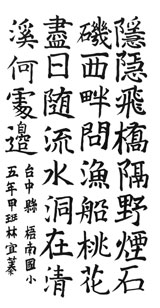 隱隱飛橋隔野煙石
磯西畔問漁船桃花
盡日随流水洞在清
溪何處邊
台中縣 梧南國小
五年甲班林宜蓁